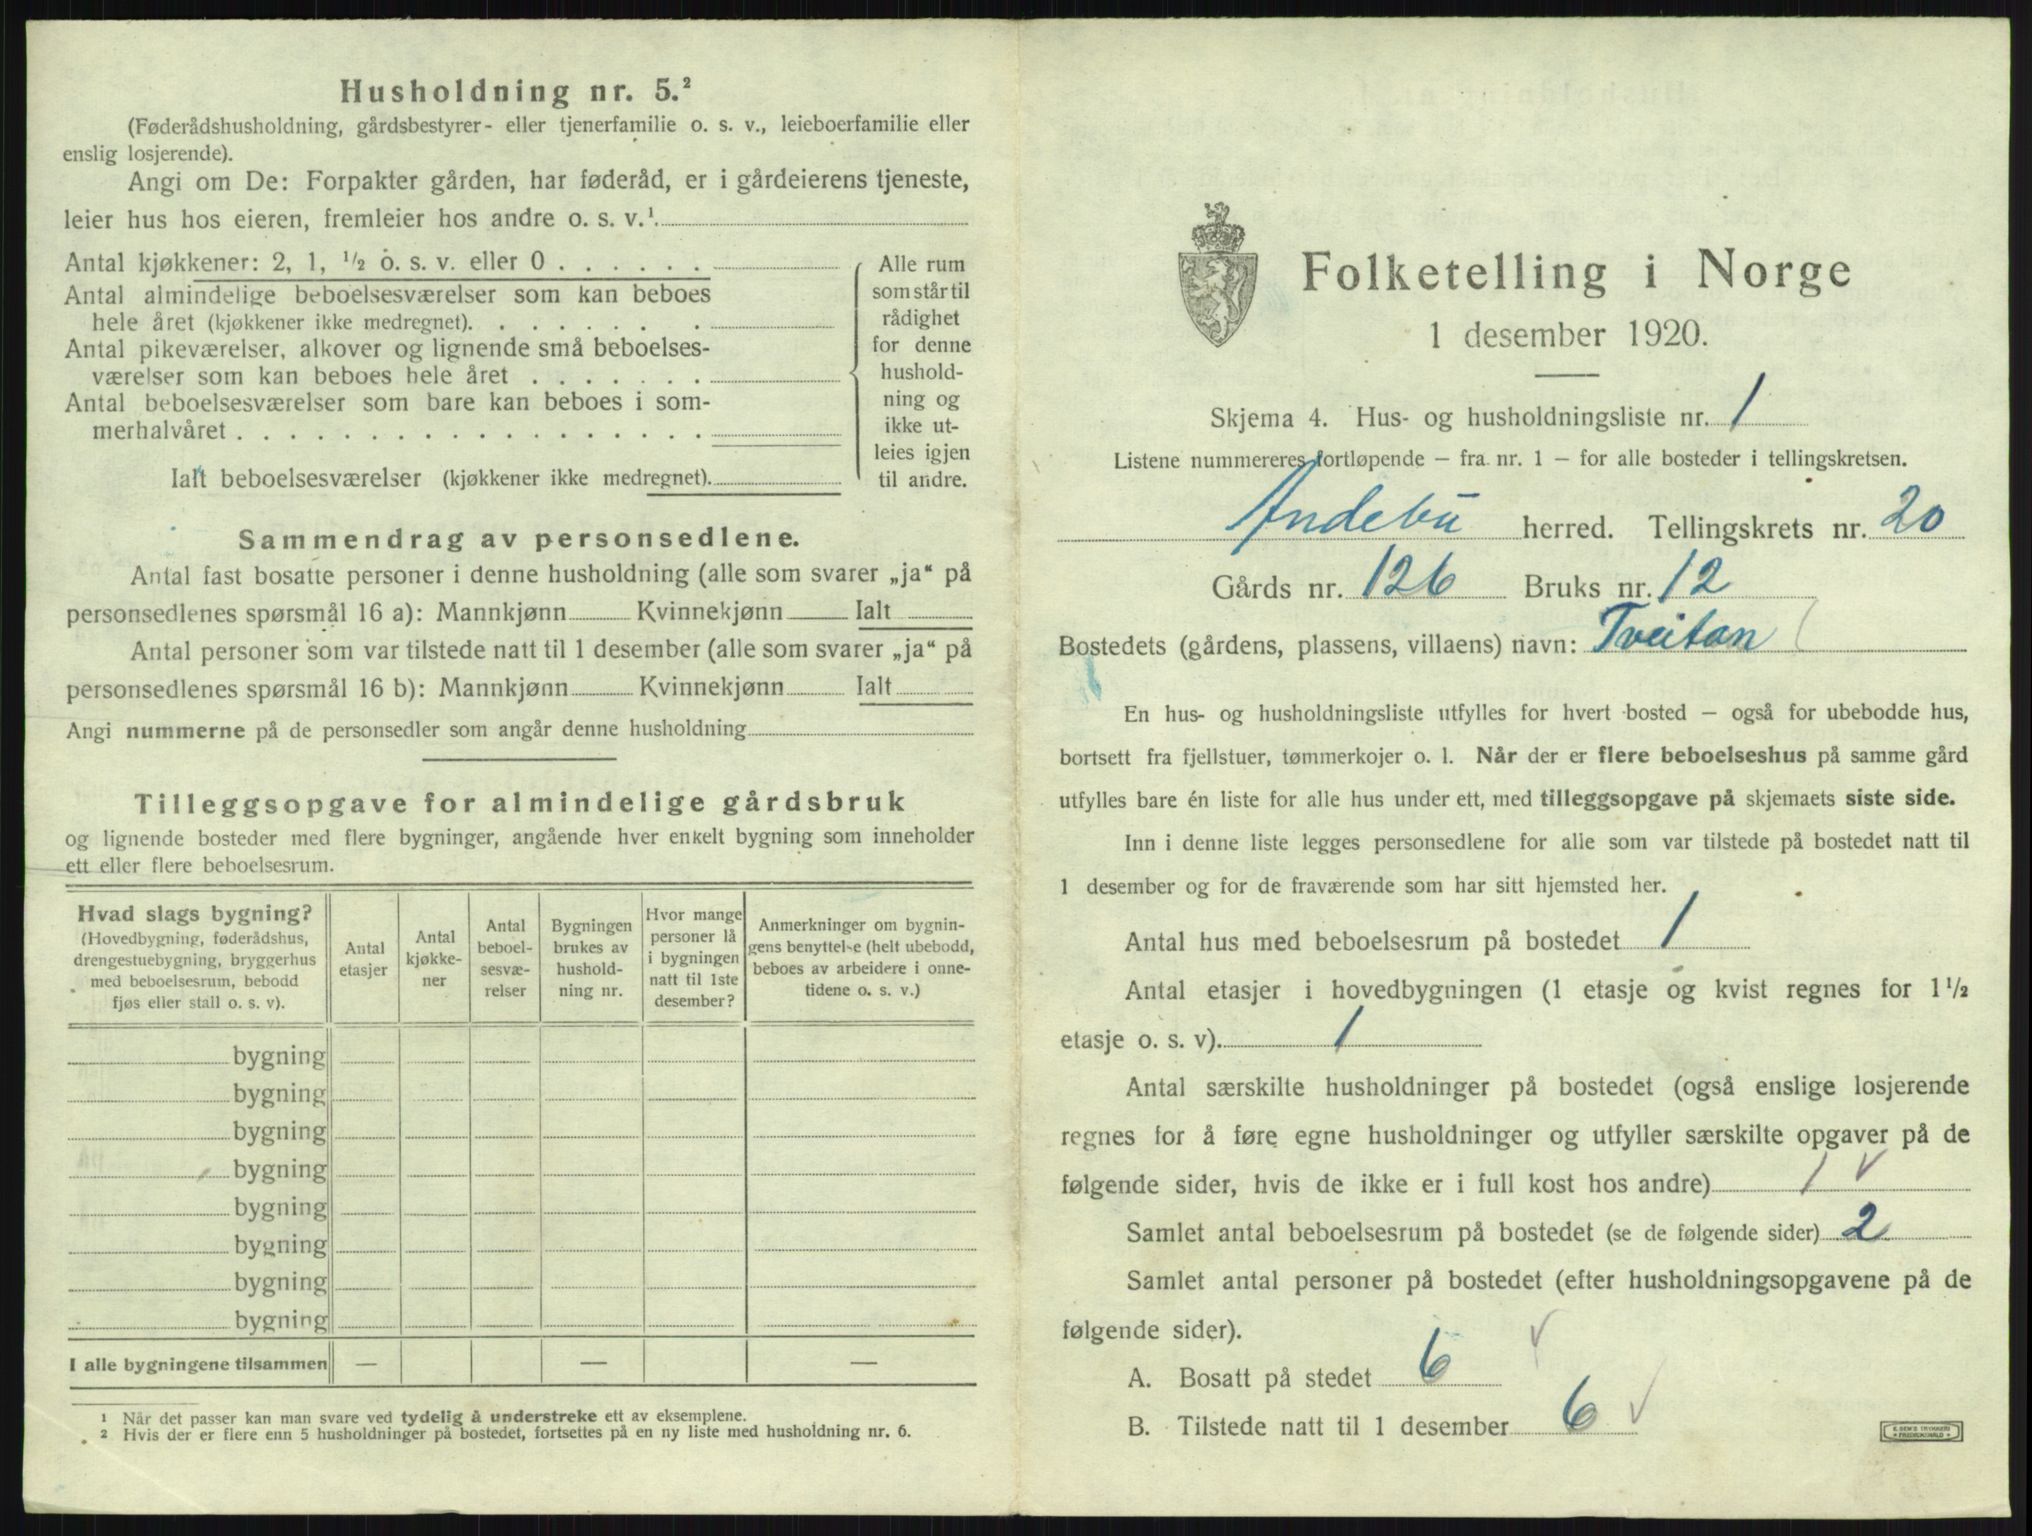 Husholdning nr. 5.²
(Føderådshusholdning, gårdsbestyrer- eller tjenerfamilie o. s. v., leieboerfamilie eller
enslig losjerende).
Angi om De: Forpakter gården, har føderåd, er i gårdeierens tjeneste,
leier hus hos eieren, fremleier hos andre o. s. v.¹
Antal kjøkkener: 2, 1, ½ o. s. v. eller 0 . . . . . .
Antal almindelige beboelsesværelser som kan beboes
hele året (kjøkkener ikke medregnet). . . . . . . .
Antal pikeværelser, alkover og lignende små beboelses-
værelser som kan beboes hele året . . . . . . .
Antal beboelsesværelser som bare kan beboes i som-
merhalvåret . . . . . . . . . . . . . . . . . .
Ialt beboelsesværelser (kjøkkener ikke medregnet).
Alle rum
som står til
rådighet
for denne
hushold-
ning og
ikke ut-
leies igjen
til andre.
Sammendrag av personsedlene.
Antal fast bosatte personer i denne husholdning (alle som svarer „ja“ på
personsedlenes spørsmål 16 a): Mannkjønn Kvinnekjønn Ialt
Antal personer som var tilstede natt til 1 desember (alle som svarer „ja“ på
personsedlenes spørsmål 16 b): Mannkjønn Kvinnekjønn Ialt
Angi nummerne på de personsedler som angår denne husholdning
Tilleggsopgave for almindelige gårdsbruk
og lignende bosteder med flere bygninger, angående hver enkelt bygning som inneholder
ett eller flere beboelsesrum.
Hvad slags bygning?
(Hovedbygning, føderådshus,
drengestuebygning, bryggerhus
med beboelsesrum, bebodd
fjøs eller stall o. s. v).
Antal
etasjer
Antal
kjøkke-
ner
Antal
beboel-
sesvæ-
relser
Bygningen
brukes av
hushold-
ning nr.
Hvor mange
personer lå
i bygningen
natt til 1ste
desember?
Anmerkninger om bygnin-
gens benyttelse (helt ubebodd,
beboes av arbeidere i onne-
tidene o. s. v.)
bygning
bygning
bygning
bygning
bygning
bygning
bygning
bygning
I alle bygningene tilsammen — — —
¹ Når det passer kan man svare ved tydelig å understreke ett av eksemplene.
² Hvis der er flere enn 5 husholdninger på bostedet, fortsettes på en ny liste med husholdning nr. 6.
Folketelling i Norge
1 desember 1920.
Skjema 4. Hus- og husholdningsliste nr. 1
Listene nummereres fortløpende — fra nr. 1 — for alle bosteder i tellingskretsen.
Andebu herred. Tellingskrets nr. 20
Gårds nr. 126 Bruks nr. 12
Bostedets (gårdens, plassens, villaens) navn: Tveitan
En hus- og husholdningsliste utfylles for hvert bosted — også for ubebodde hus,
bortsett fra fjellstuer, tømmerkojer o. l. Når der er flere beboelseshus på samme gård
utfylles bare én liste for alle hus under ett, med tilleggsopgave på skjemaets siste side.
Inn i denne liste legges personsedlene for alle som var tilstede på bostedet natt til
1 desember og for de fraværende som har sitt hjemsted her.
Antal hus med beboelsesrum på bostedet 1
Antal etasjer i hovedbygningen (1 etasje og kvist regnes for 1½
etasje o. s. v). 1
Antal særskilte husholdninger på bostedet (også enslige losjerende
regnes for å føre egne husholdninger og utfyller særskilte opgaver på de
følgende sider, hvis de ikke er i full kost hos andre) 1 √
Samlet antal beboelsesrum på bostedet (se de følgende sider) 2
Samlet antal personer på bostedet (efter husholdningsopgavene på de
følgende sider).
A. Bosatt på stedet 6 √
B. Tilstede natt til 1 desember 6 √